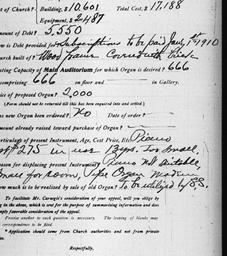 of Church? Building, $10,601 Total Cost, $17,188
Equipment, $2487
Amount of Debt? 5,550
is Debt provided for? Subscriptions to be paid July 1st 1910
Church built of? Wood frame Covered with Brick
Seating Capacity of Main Auditorium for which Organ is desired? 666
comprising 666 on floor and in Gallery.
Price of proposed Organ? 2,000
(Form should not to be returned till this has been inquired into and settled)
new Organ been ordered? No Date of order?
amount already raised toward purchase of Organ?
Particulars of present Instrument, Age, Cost Price, Etc. Piano
Cost $275 in use 13 yrs. Too Small
reason for displacing present Instrument? Piano Not suitable,
Small for room, Pipe Organ
much is to be realized by sale of old Organ? To be utilized by S.S.
To facilitate Mr. Carnegie's consideration of your appeal, will you oblige by
in the above, which is sent for the purpose of summarizing information and
simply favorable consideration of the appeal.
Precise answer to each question is necessary. The leaving of blanks may
correspondence to be filed.
* Application should come from Church authorities and not from private
Respectfully,